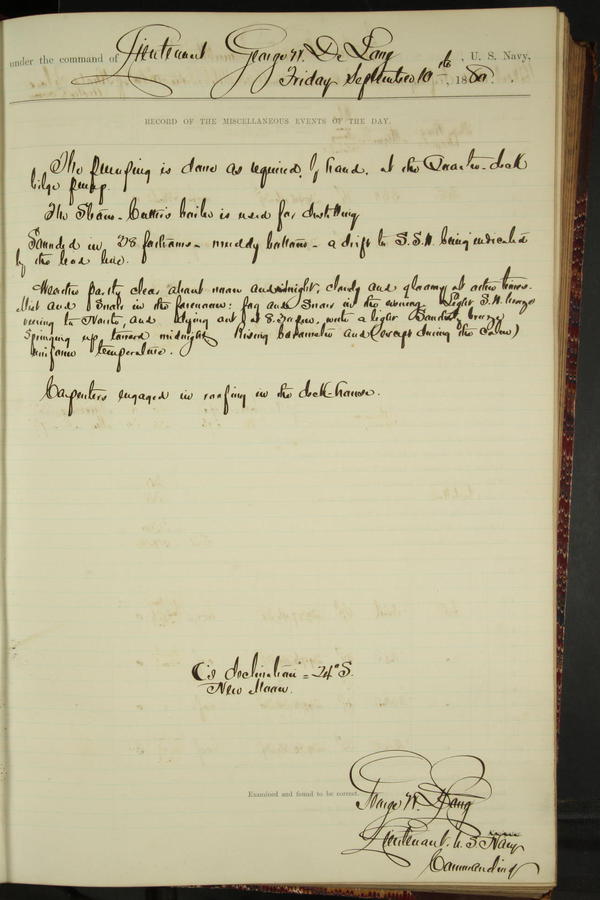 under the command of Lieutenant George W. De Long, U. S. Navy,
Friday September 10th, 1880.
RECORD OF THE MISCELLANEOUS EVENTS OF THE DAY.
The pumping is done as required, by hand, at the Quarter-deck
bilge pump.
The Steam-Cutter's boiler is used for distilling
Sounded in 28 fathoms - muddy bottom - a drift to S.S.W. being indicated
by the lead line.
Weather partly clear about noon and midnight, cloudy and gloomy at other times.
Mist and snow in the forenoon: fog and snow in the evening. Light S.W. breeze
veering to North, and dying out at 8.30 p.m., with a light breeze
springing up toward midnight. Rising barometer and (except during the calm)
uniform temperature.
Carpenters engaged in roofing in the deck-house.
declination = 24° S.
New Moon.
Examined and found to be correct.
George W. De Long
Lieutenant U.S. Navy
Commanding